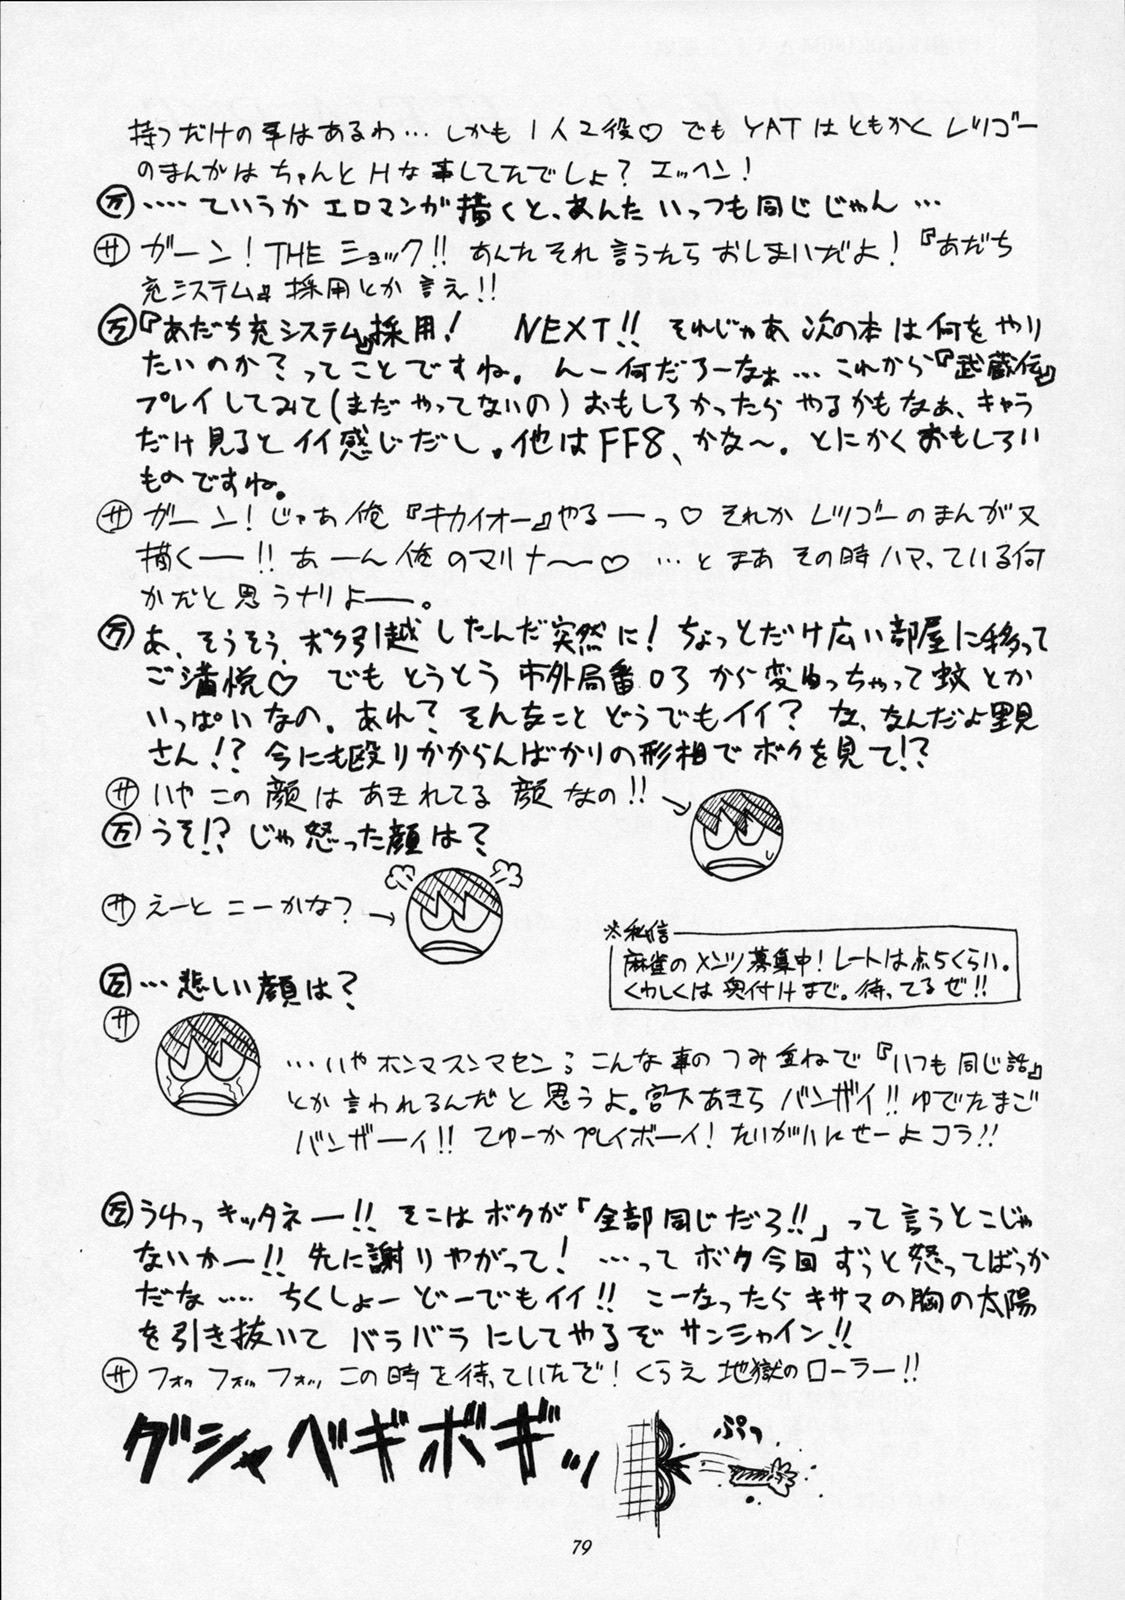 持つだけの事はあるわ…しかも1人2役♡ でも YATはともかく レツゴー
のまんがは ちゃんと Hな事してたでしょ？ エッヘン！
万 ‥‥ていうか エロマンガ描くと、あんた いっつも同じじゃん…
サ ガーン！THE ショック!! あんたそれ言うたら おしまいだよ！『あだち
充システム』採用とか言え!!
万 『あだち充システム』採用！ NEXT!! それじゃあ 次の本は何をやり
たいのか？ってことですね。んー何だろーなぁ…これから『武蔵伝』
プレイしてみて(まだ やってないの)おもしろかったら やるかもなぁ、キャラ
だけ見ると イイ感じだし。他はFF8、かな〜。とにかくおもしろい
ものですね。
サ ガーン！じゃあ俺『キカイオー』やるーっ♡ それか レツゴーのまんが又
描くー!! あーん俺のマリナ〜♡ …とまあ その時ハマっている何
かだと思うナリよー。
万 あ、そうそう、ボク引越ししたんだ突然に！ちょっとだけ広い部屋に移って
ご満悦♡ でも とうとう 市外局番03から変わっちゃって蚊とか
いっぱいなの。あれ？そんなこと どうでもイイ？な、なんだよ里見
さん!？今にも殴りかからんばかりの形相でボクを見て!？
サ いや この顔は あきれてる顔なの!!
万 うそ!？じゃ怒った顔は？
サ えーと こーかな？
※私信
麻雀のメンツ募集中！レートは点5くらい。
くわしくは奥付けまで。待ってるぜ!!
万 …悲しい顔は？
サ
…いやホンマスンマセン；こんな事のつみ重ねで『いつも同じ話』
とか言われるんだと思うよ。宮下あきら バンザイ!! ゆでたまご
バンザーイ!! てゆーか プレイボーイ！たいがいにせーよコラ!!
万 うわっ キッタネー!! そこはボクが「全部同じだろ!!」って言うとこじゃ
ないかー!! 先に謝りやがって！…って ボク今回ずっと怒ってばっか
だな‥‥ ちくしょー どーでもイイ!! こーなったらキサマの胸の太陽
を引き抜いて バラバラにしてやるぞ サンシャイン!!
サ フォッ フォッ フォッ この時を待っていたで！くらえ 地獄のローラー!!
グシャベギボギッ
ぷっ
79